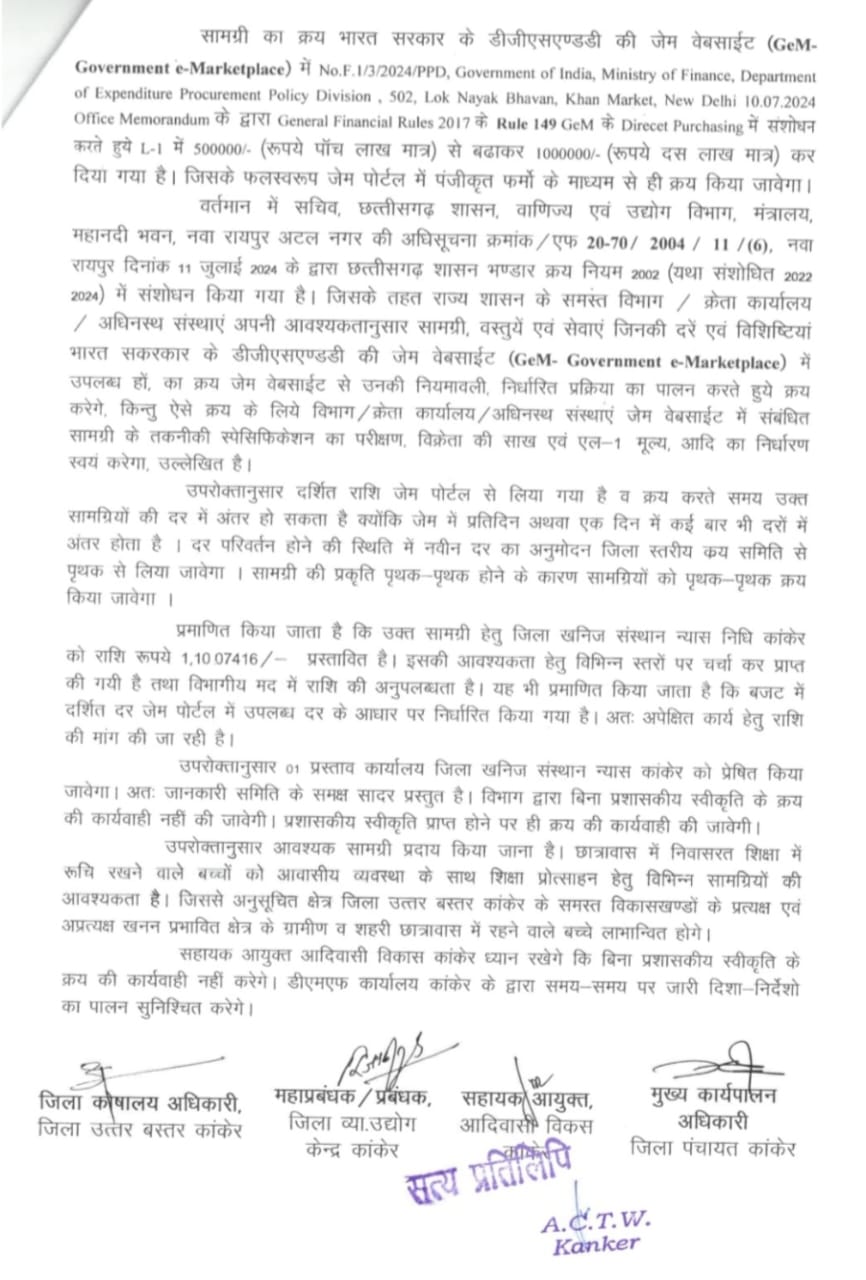 सामग्री का क्रय भारत सरकार के डीजीएसएण्डडी की जेम वेबसाईट (GeM-
Government e-Marketplace) में No.F.1/3/2024/PPD, Government of India, Ministry of Finance, Department
of Expenditure Procurement Policy Division , 502, Lok Nayak Bhavan, Khan Market, New Delhi 10.07.2024
Office Memorandum के द्वारा General Financial Rules 2017 के Rule 149 GeM के Direcet Purchasing में संशोधन
करते हुये L-1 में 500000/- (रूपये पॉच लाख मात्र) से बढाकर 1000000/- (रूपये दस लाख मात्र) कर
दिया गया है। जिसके फलस्वरूप जेम पोर्टल में पंजीकृत फर्मो के माध्यम से ही क्रय किया जावेगा।
वर्तमान में सचिव, छत्तीसगढ़ शासन, वाणिज्य एवं उद्योग विभाग, मंत्रालय,
महानदी भवन, नवा रायपुर अटल नगर की अधिसूचना क्रमांक/एफ 20-70/ 2004 / 11 /(6), नवा
रायपुर दिनांक 11 जुलाई 2024 के द्वारा छत्तीसगढ़ शासन भण्डार क्रय नियम 2002 (यथा संशोधित 2022
2024) में संशोधन किया गया है। जिसके तहत राज्य शासन के समस्त विभाग / क्रेता कार्यालय
/ अधिनस्थ संस्थाएं अपनी आवश्यकतानुसार सामग्री, वस्तुयें एवं सेवाएं जिनकी दरें एवं विशिष्टियां
भारत सकरकार के डीजीएसएण्डडी की जेम वेबसाईट (GeM- Government e-Marketplace) में
उपलब्ध हों, का क्रय जेम वेबसाईट से उनकी नियमावली, निर्धारित प्रक्रिया का पालन करते हुये क्रय
करेगे, किन्तु ऐसे क्रय के लिये विभाग/क्रेता कार्यालय/अधिनस्थ संस्थाएं जेम वेबसाईट में संबंधित
सामग्री के तकनीकी स्पेसिफिकेशन का परीक्षण, विक्रेता की साख एवं एल-1 मूल्य, आदि का निर्धारण
स्वयं करेगा, उल्लेखित है।
उपरोक्तानुसार दर्शित राशि जेम पोर्टल से लिया गया है व क्रय करते समय उक्त
सामग्रियों की दर में अंतर हो सकता है क्योंकि जेम में प्रतिदिन अथवा एक दिन में कई बार भी दरों में
अंतर होता है । दर परिवर्तन होने की स्थिति में नवीन दर का अनुमोदन जिला स्तरीय कय समिति से
पृथक से लिया जावेगा । सामग्री की प्रकृति पृथक-पृथक होने के कारण सामग्रियों को पृथक-पृथक क्रय
किया जावेगा ।
प्रमाणित किया जाता है कि उक्त सामग्री हेतु जिला खनिज संस्थान न्यास निधि कांकेर
को राशि रूपये 1,10 07416/- प्रस्तावित है। इसकी आवश्यकता हेतु विभिन्न स्तरों पर चर्चा कर प्राप्त
की गयी है तथा विभागीय मद में राशि की अनुपलब्धता है। यह भी प्रमाणित किया जाता है कि बजट में
दर्शित दर जेम पोर्टल में उपलब्ध दर के आधार पर निर्धारित किया गया है। अतः अपेक्षित कार्य हेतु राशि
की मांग की जा रही है।
उपरोक्तानुसार 01 प्रस्ताव कार्यालय जिला खनिज संस्थान न्यास कांकेर को प्रेषित किया
जावेगा। अतः जानकारी समिति के समक्ष सादर प्रस्तुत है। विभाग द्वारा बिना प्रशासकीय स्वीकृति के क्रय
की कार्यवाही नहीं की जावेगी। प्रशासकीय स्वीकृति प्राप्त होने पर ही क्रय की कार्यवाही की जावेगी।
उपरोक्तानुसार आवश्यक सामग्री प्रदाय किया जाना है। छात्रावास में निवासरत शिक्षा में
रूचि रखने वाले बच्चों को आवासीय व्यवस्था के साथ शिक्षा प्रोत्साहन हेतु विभिन्न सामग्रियों की
आवश्यकता है। जिससे अनुसूचित क्षेत्र जिला उत्तर बस्तर कांकेर के समस्त विकासखण्डों के प्रत्यक्ष एवं
अप्रत्यक्ष खनन प्रभावित क्षेत्र के ग्रामीण व शहरी छात्रावास में रहने वाले बच्चे लाभान्वित होगे।
सहायक आयुक्त आदिवासी विकास कांकेर ध्यान रखेगे कि बिना प्रशासकीय स्वीकृति के
क्रय की कार्यवाही नहीं करेगे। डीएमएफ कार्यालय कांकेर के द्वारा समय-समय पर जारी दिशा-निर्देशो
का पालन सुनिश्चित करेगे।
जिला कोषालय अधिकारी,
जिला उत्तर बस्तर कांकेर
महाप्रबंधक/प्रबंधक,
जिला व्या.उद्योग
केन्द्र कांकेर
सहायक आयुक्त,
आदिवासी विकस
कांकेर
मुख्य कार्यपालन
अधिकारी
जिला पंचायत कांकेर
सत्य प्रतिलिपि
A.C.T.W.
Kanker